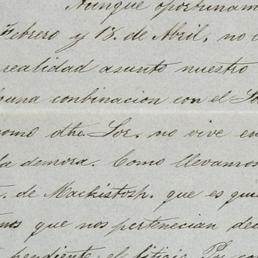 Aunque oportunam
Febrero y 18. de Abril, no
realidad asunto nuestro
una combinacion con el
como dho Sor, no vive en
la demora. Como llevamos
de Mackistosh, que es qui
que nos pertenecian de
pendiente el